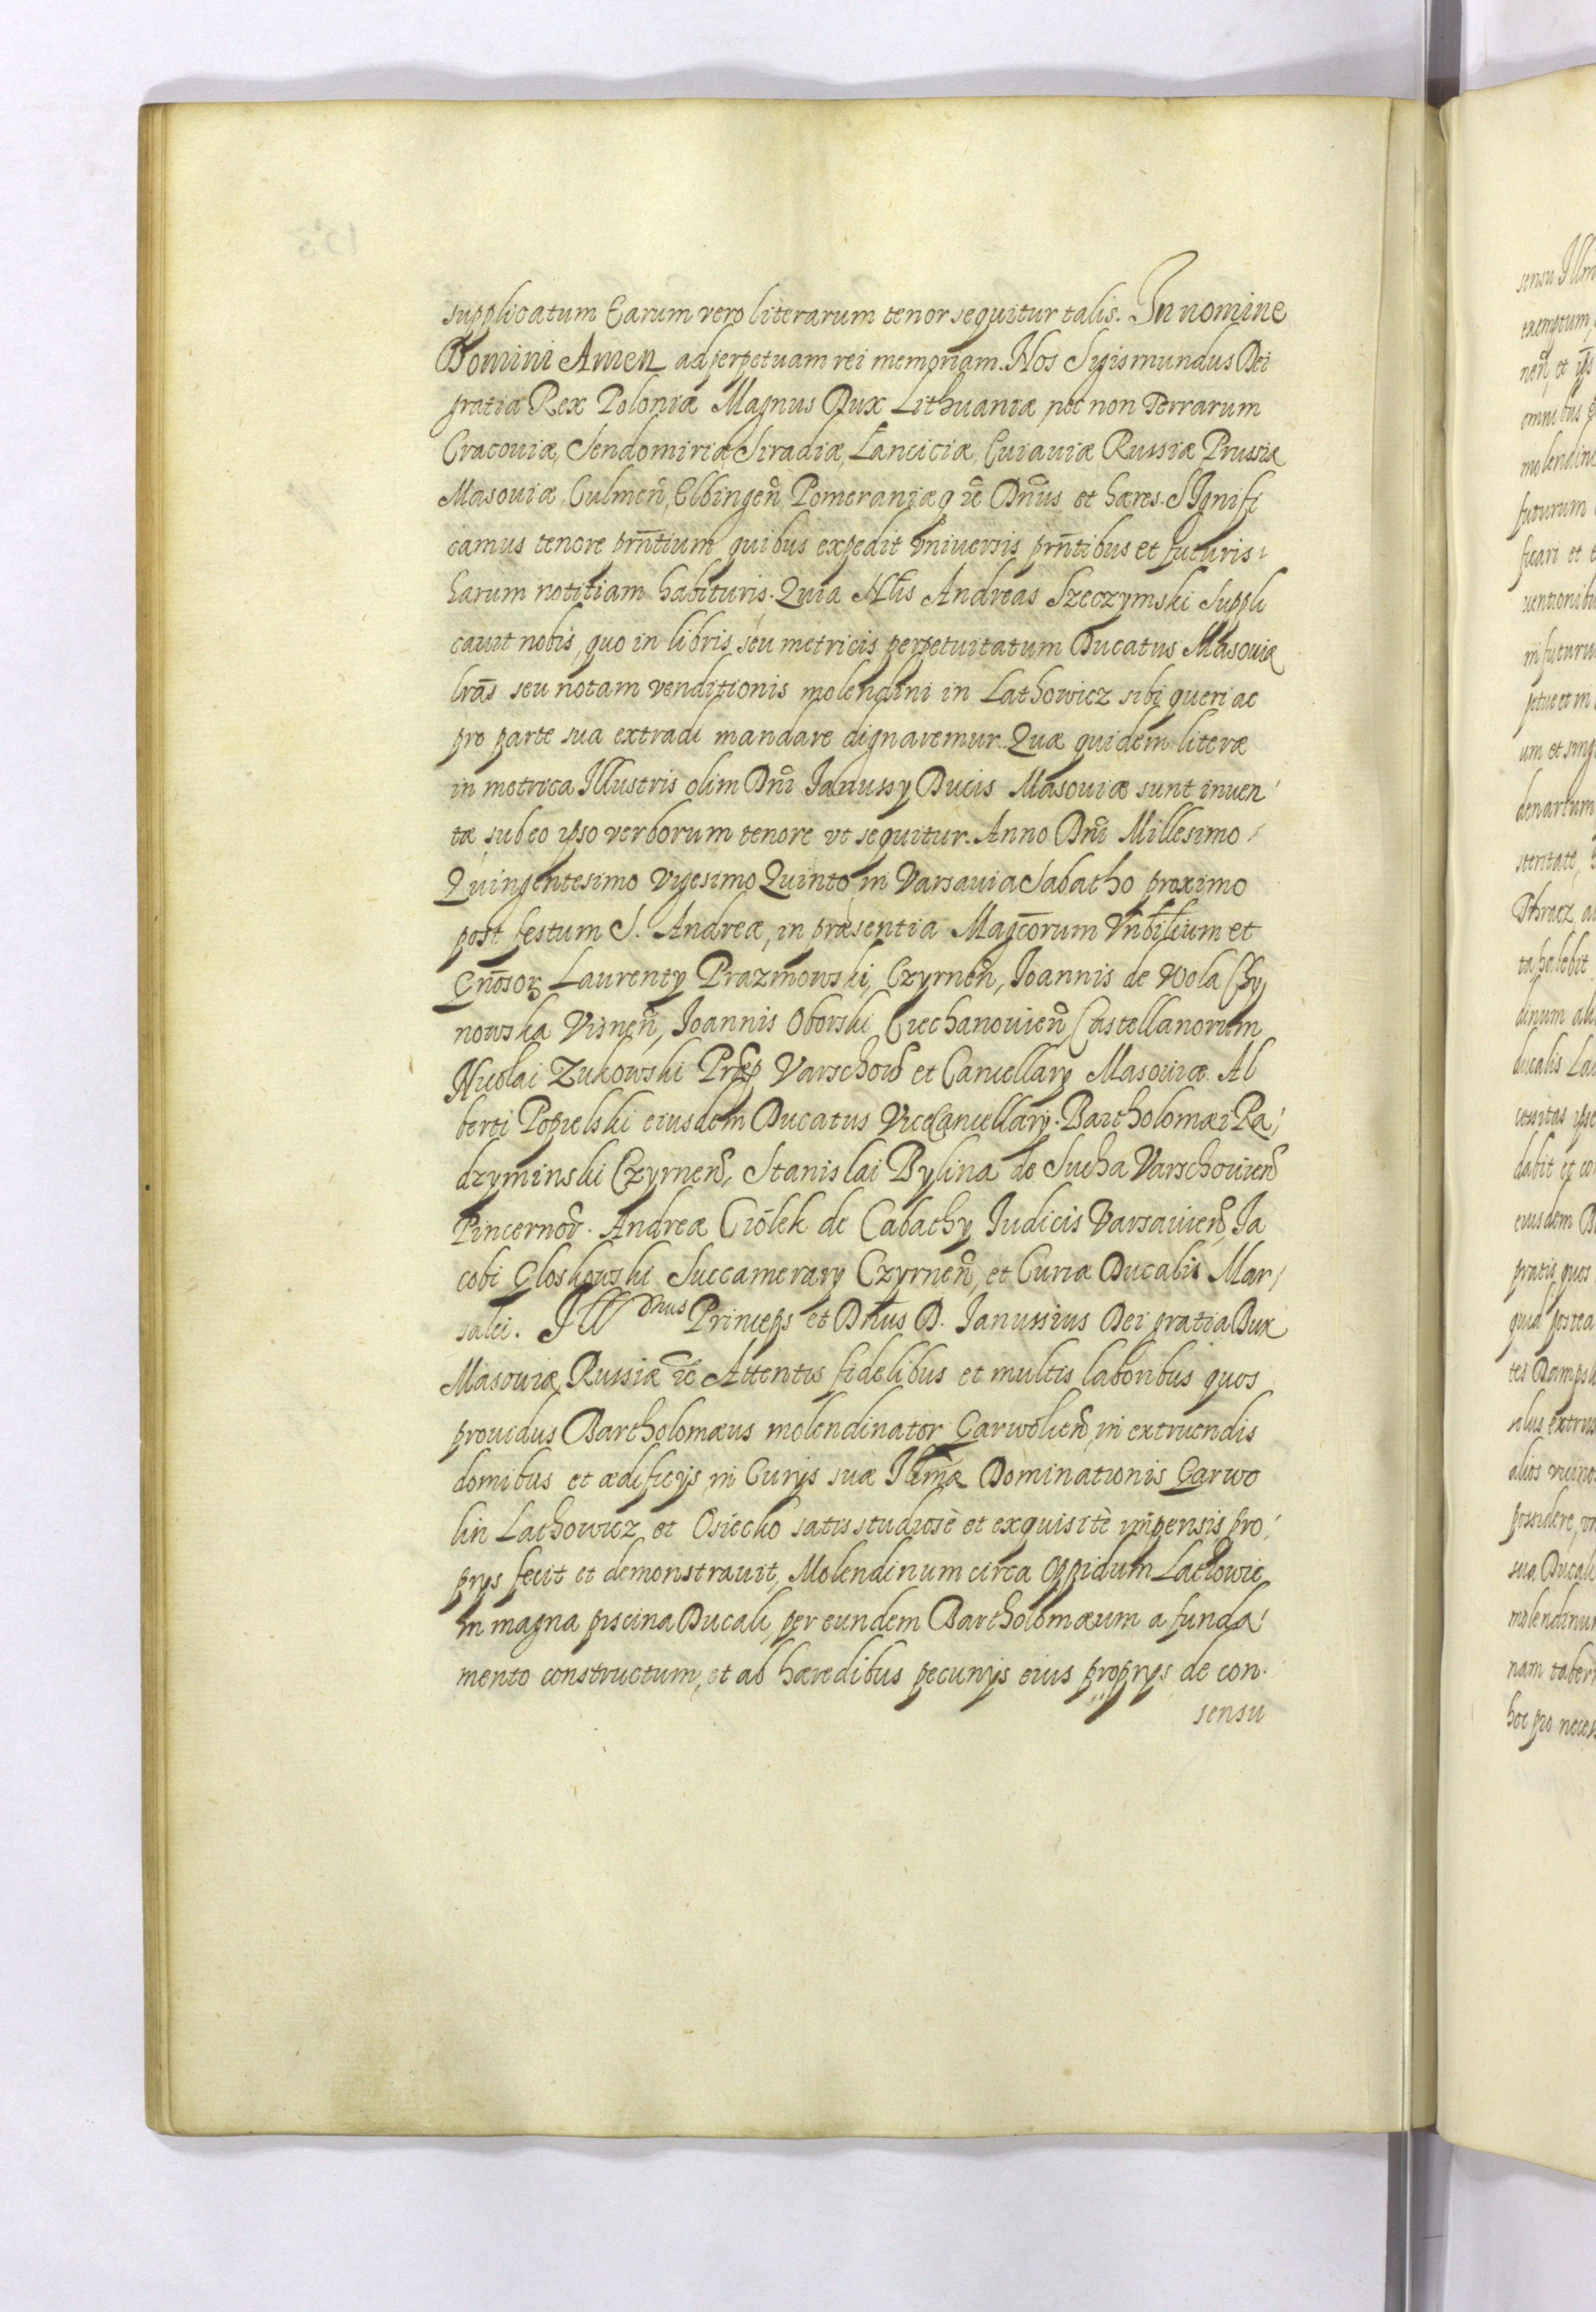 supplicatum Earum vero literarum tenor sequitur talis. In nomine
Domini Amen ad perpetuam rei memoriam. Nos Sigismundus Dei
gratia Rex Poloniæ Magnus Dux Lithuaniæ nec non Terrarum
Cracouiæ, Sendomiriæ Siradiæ, Lanciciæ, Cuiauiæ Russiæ Prussiæ
Masouiæ, Culmeñ, Elbingeñ, Pomeraniæq ꝛc Dn̄us et hæres. SIgnifi
camus tenore pn̄tium quibus expedit vniuersis pn̄tibus et futuris
harum notitiam habituris. Quia Nb̄lis Andreas Szeczymski Suppli
cauit nobis, quo in libris, seu metricis perpetuitatum Ducatus Masouiæ
lr̄as seu notam venditionis molendini in Lathowicz sibi queri ac
pro parte sua extradi mandare dignaremur. Quæ quidem literæ
in metrica Illustris olim Dn̄i Janussy Ducis Masouiæ sunt inuen
tæ sub eo ipso verborum tenore vt sequitur. Anno Dn̄i Millesimo
Quingentesimo Vigesimo Quinto in Varsauia Sabatho proximo
post festum S. Andreæ, in præsentia Magcorum Vnbilium et
Gn̄osoꝝ Laurenty Prazmowski, Czyrneñ, Joannis de Wola Chy
nowska Visneñ, Joannis Oborski Ciechanouieñ, Castellanorum
Nicolai Zukowski Præp Varschoũ et Cancellary Masouiæ. Al
berti Popielski eiusdem Ducatus ViceCancellary. Bartholomæi Ra
dzyminski Czyrneñ, Stanislai Bylina de Sucha Varschouieñ
Pincernoꝝ. Andreæ Ciolek de Cabathy Iudicis Varsauieñ, Ja
cobi Gloskowski Succamerary Czyrneñ, et Curiæ Ducalis Mar
salci. Ill mus Princeps et Dn̄us D. Janussius Dei gratia Dux
Masouiæ, Russiæ ꝛc Attentis fidelibus et multis laboribus quos
prouidus Bartholomæus molendinator Garwolieñ, in extruendis
domibus et ædificijs, in Curijs suæ Illm̄æ Dominationis Garwo
lin Lathowicz et Osiecko satis studiosè et exquisitè impensis pro
prijs fecit et demonstrauit, Molendinum circa Oppidum Latowic
in magna piscina Ducali, per eundem Bartholomæum a funda
mento constructum, et ab hæredibus pecunijs eius proprijs de con
sensu